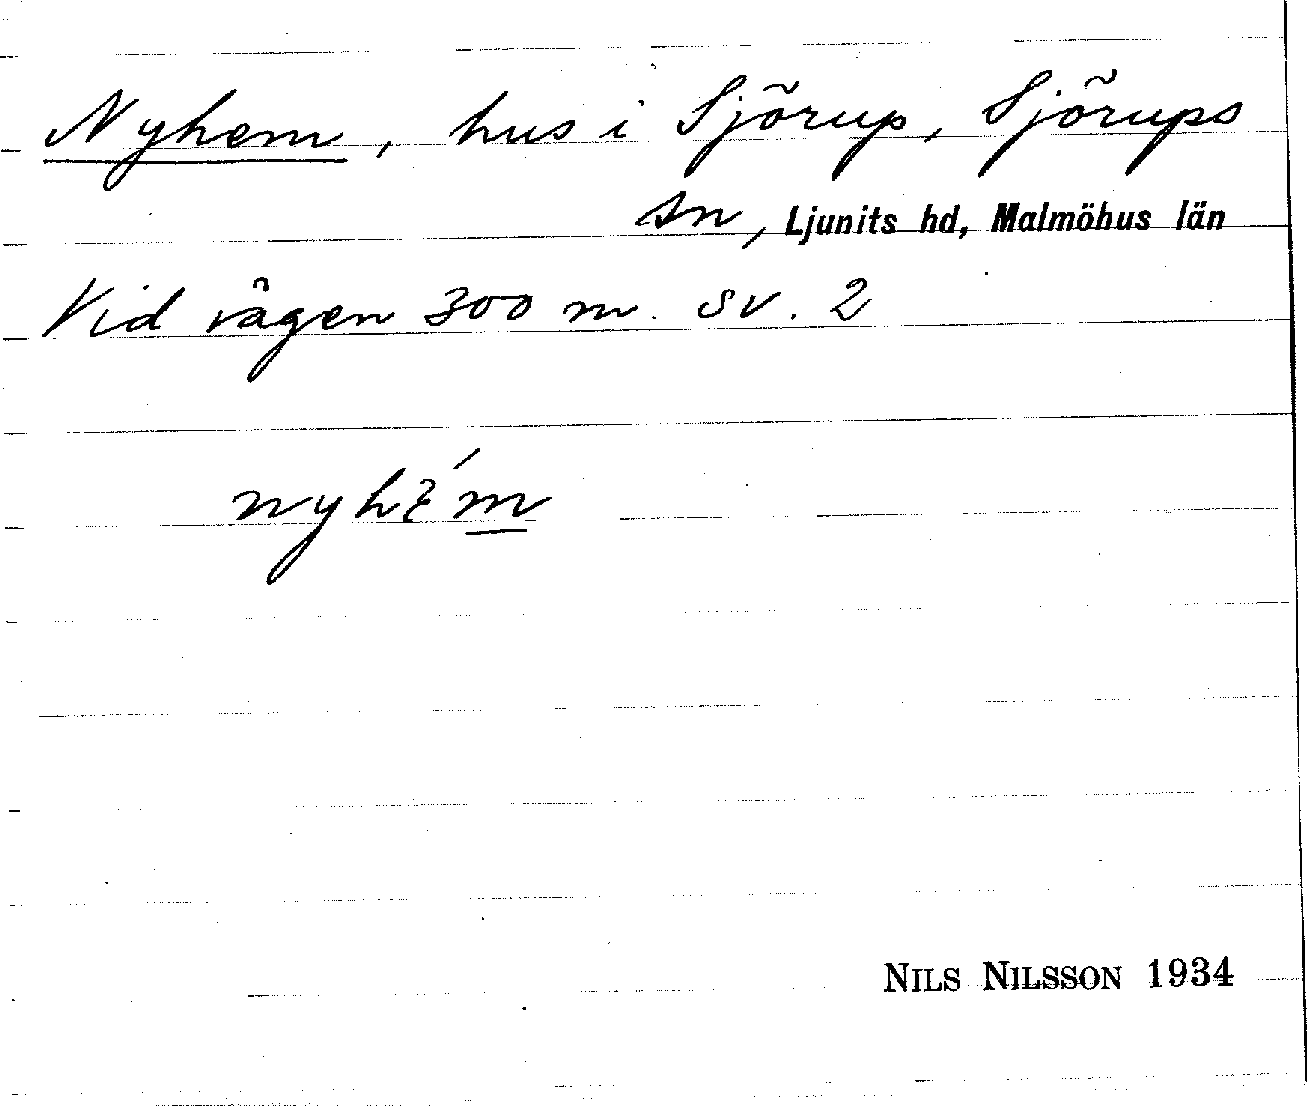 Nyhem, hus i Sjörup, Sjörups
sn, Ljunits hd, Malmöhus län
Vid vägen 300 m. SV. 2
NILS NILSSON 1934